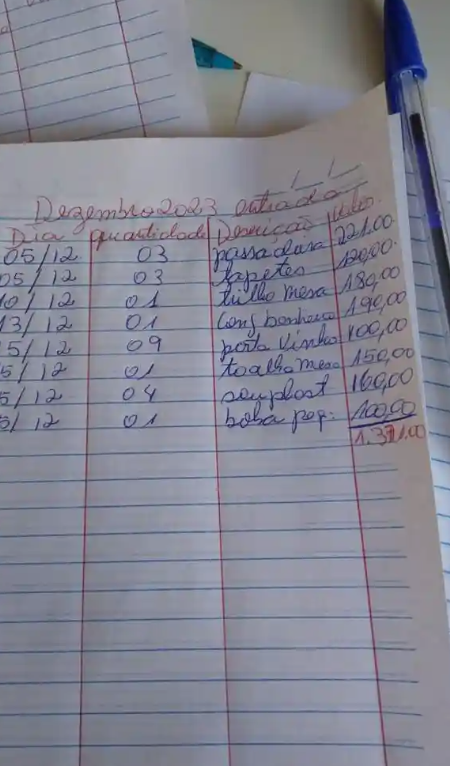 Dezembro 2023 entrada
Dia quantidade Descrição Valor
05/12 03 passadeira 221.00
05/12 03 tapetes 120,00
10/12 01 trilho mesa 180,00
13/12 01 conj banheiro 190,00
5/12 09 porta vinhos 100,00
5/12 01 toalha mesa 150,00
5/12 04 souplast 160,00
5/12 01 bolsa peq. 100,00
1.371.00